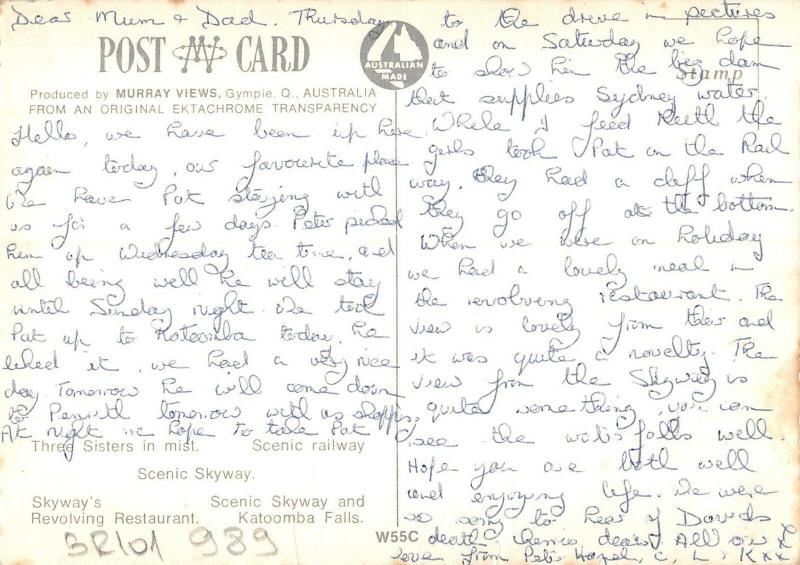 Dear Mum & Dad. Thursday
POST CARD
AUSTRALIAN MADE
Produced by MURRAY VIEWS, Gympie, Q., AUSTRALIA
FROM AN ORIGINAL EKTACHROME TRANSPARENCY
Hello, we have been up here
again today, our favourite place
We have Pat staying with
us for a few days. Peter picked
him up Wednesday tea time, and
all being well he will stay
until Sunday night. We took
Pat up to Katoomba today. He
liked it, we had a very nice
day. Tomorrow he will come down
to Penrith tomorrow with us shopping
At night we hope to take Pat
Three Sisters in mist. Scenic railway
Scenic Skyway.
Skyway's Scenic Skyway and
Revolving Restaurant. Katoomba Falls.
3R101 989
to the drive in pectures
and on Saturday we hope
to show him the big dam
Stamp
that supplies Sydney water.
While I feed Keith the
girls took Pat on the Rail
way. They had a daff when
they go off at the bottom.
When we were on holiday
we had a lovely meal in
the revolving restaurant. The
view is lovely from there and
it was quite a novelty. The
view from the Skyway is
quite something, you can
see the water falls well.
Hope you are both well
and enjoying life. We were
so sorry to hear of Davids
W55C
death. dears. All our
love from Peter Hazel, C, L, K xx